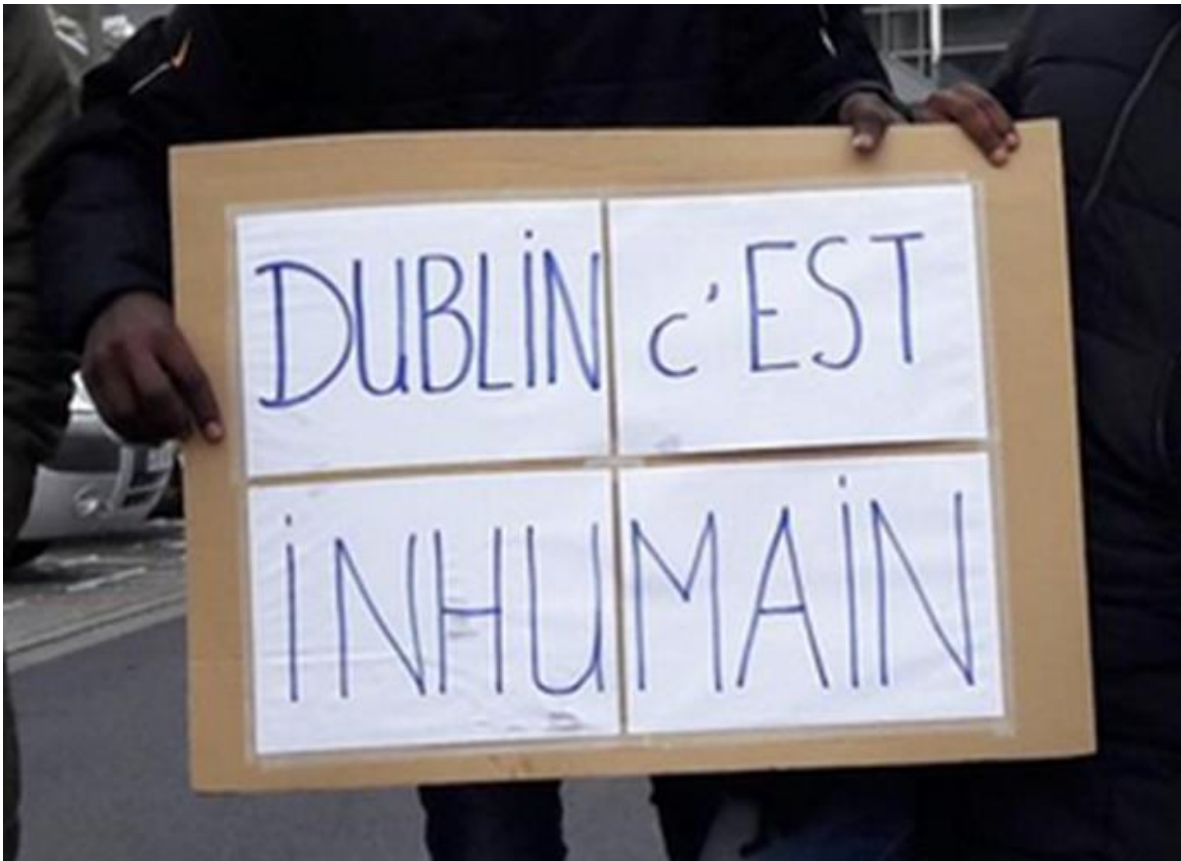 DUBLIN c'EST
INHUMAIN